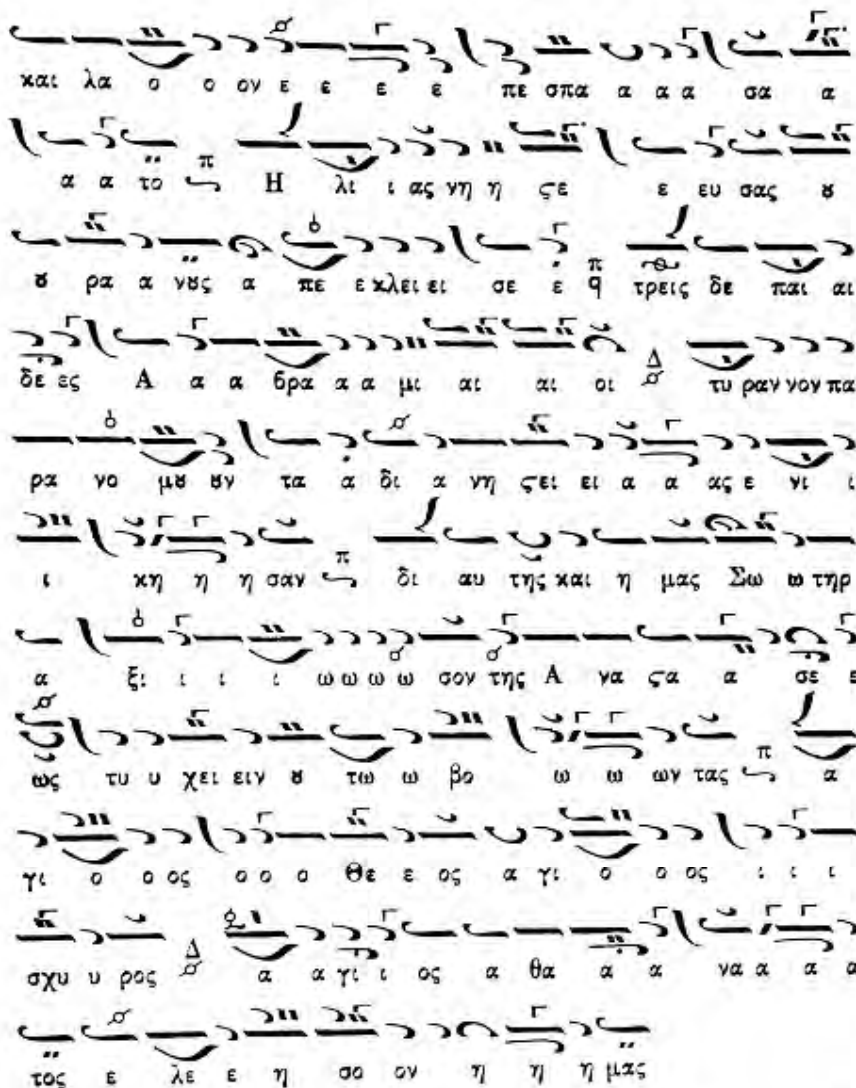 και λα ο ο ον ε ε ε ε πε σπα α α α σα α
α α το π Η λι ι ας νη η ϛε ε ευ σας ȣ
ȣ ρα α νȣς α πε ε κλει ει σε ε π q τρεις δε παι αι
δε ες Α α α βρα α α μι αι αι οι Δ τυ ραν νον πα
ρα νο μȣ ȣν τα α δι α νη ϛει ει α α ας ε νι ι
ι κη η η σαν π δι αυ της και η μας Σω ω τηρ
α ξι ι ι ι ω ω ω ω σον της Α να ϛα α σε ε
ως τυ υ χει ειν ȣ τω ω βο ω ω ων τας π α
γι ο ο ος ο ο ο Θε ε ος α γι ο ο ος ι ι ι
σχυ υ ρος Δ α α γι ι ος α θα α α να α α α
τος ε λε ε η σο ον η η η μας